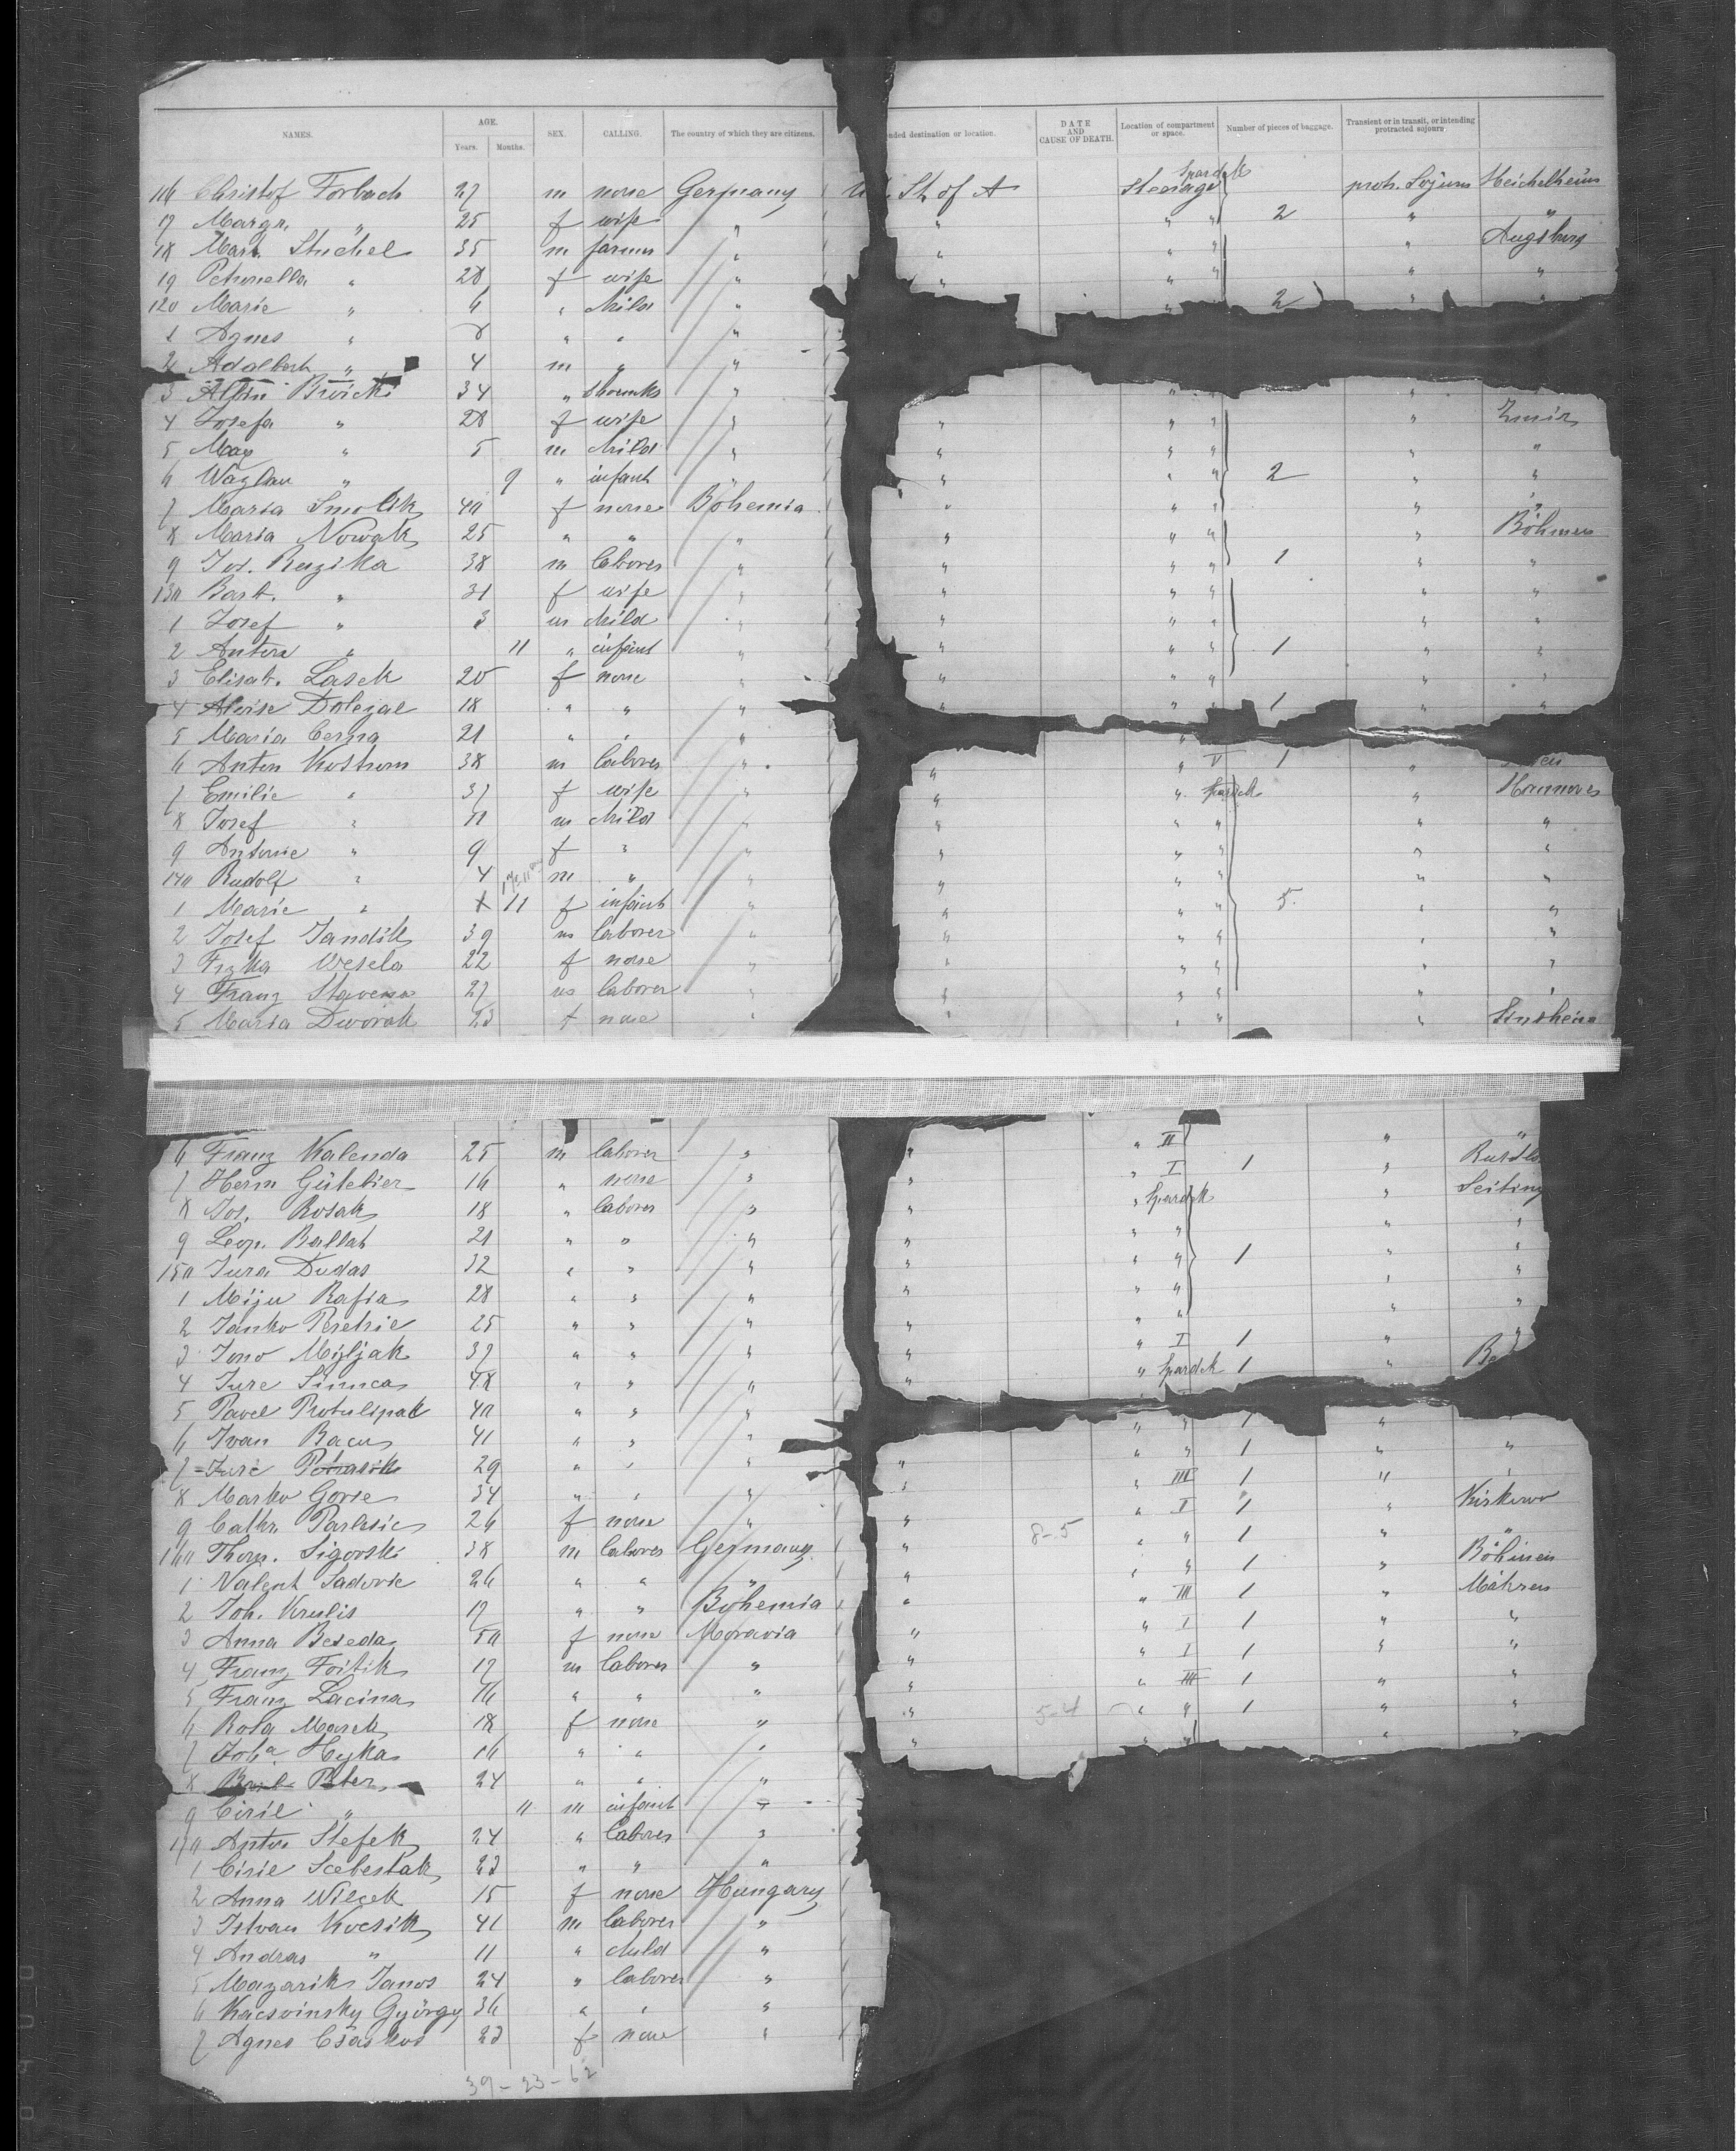 NAMES. AGE. Years. Months. SEX. CALLING. The country of which they are citizens. nded destination or location. DATE AND CAUSE OF DEATH. Location of compartment or space. Number of pieces of baggage. Transient or in transit, or intending protracted sojourn
116 Christof Forbach 27 m none Germany U. St. of A Steerage Spardek protr. Sojurn Heichelheim
17 Margr. " 25 f wife " " " " 2 " "
18 Mart. Stuchel 35 m farmer " " " " " Augsburg
19 Petronella " 28 f wife " " " " " "
120 Marie " 6 " child " " 2 " "
1 Agnes " " " "
2 Adalbert " 4 m " "
3 Albin 34 " "
4 Josefa " 28 f wife " " " " "
5 Max " 5 m child " " " " " "
6 Wazlau " 9 " infant " " " " 2 " "
7 Maria Smolik 40 f none Bohemia " " " " "
8 Maria Nowak 25 " " " " " " " Böhmen
9 Jos. Ruzika 38 m laborer " " " " 1 " "
130 Barb. " 31 f wife " " " " " "
1 Josef " 3 m child " " " " " "
2 Anton " 11 " infant " " " " 1 " "
3 Elisab. Lasek 20 f none " " " " " "
4 Aloise Dolezal 18 " " " " " " 1 " "
5 Maria Cerna 21 " " " "
6 Anton Kostrom 38 m laborer " " " V 1 "
7 Emilie " 37 f wife " " " Spardek " Hannover
8 Josef " 11 m child " " " " " "
9 Antonie " 9 f " " " " " " "
140 Rudolf " 4 m " " " " " " "
1 Marie " 11 f infant " " " " 5 " "
2 Josef Jandik 39 m laborer " " " " " "
3 Frzka Wesela 22 f none " " " " " "
4 Franz 27 m laborer " " " " " "
5 Maria Dworak 23 f none " " " " " Sinsheim
6 Franz Kalenda 25 m laborer " " " II " "
7 Herm 16 " none " " " I 1 "
8 Jos. Rosak 18 " laborer " " " Spardek "
9 Leop. Ballat 21 " " " " " " " "
150 Jura Dudas 32 " " " " " " 1 " "
1 Miju Rafia 28 " " " " " " " "
2 Janko Peretric 25 " " " " " " " "
3 Jono Mizljak 37 " " " " " I 1 " "
4 Jure Simica 48 " " " " " Spardek 1 "
5 Pavel 40 " " " " " 1 "
6 Ivan Bacus 41 " " " " " 1 " "
7 Jure 29 " " " " " III 1 " "
8 Marko Goric 34 " " " " " I 1 "
9 Cathr. 26 f none " " 8-5 " " 1 "
160 Thom. Sigorski 38 m laborer Germany " " " 1 " Böhmen
1 Valent Sadovic 26 " " " " " III 1 " Mähren
2 Joh. Krulis 17 " " Bohemia " " I 1 " "
3 Anna Beseda 50 f none Moravia " " I 1 " "
4 Franz Foitik 17 m laborer " " " III 1 " "
5 Franz Lacina 16 " " " " 5-4 " " 1 " "
6 Rosa Marek 18 f none " " " "
7 Joha Hyka 16 " " "
8 Peter 24 " " "
9 Ciril " 11 m infant "
170 Anton Stefek 24 " laborer "
1 Ciril 23 " " "
2 Anna Wilcek 15 f none Hungary
3 Istvan Kocsik 41 m laborer "
4 Andras " 11 " child "
5 Mazarik Janos 24 " laborer "
6 Kacsvinsky György 36 " " "
7 Agnes Csaskos 23 f none "
39-23-62